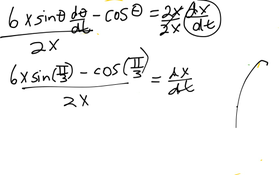 6x sinθ dθ/dt - cosθ = 2x/2x dx/dt
2x
6x sin(π/3) - cos(π/3) = dx/dt
2x